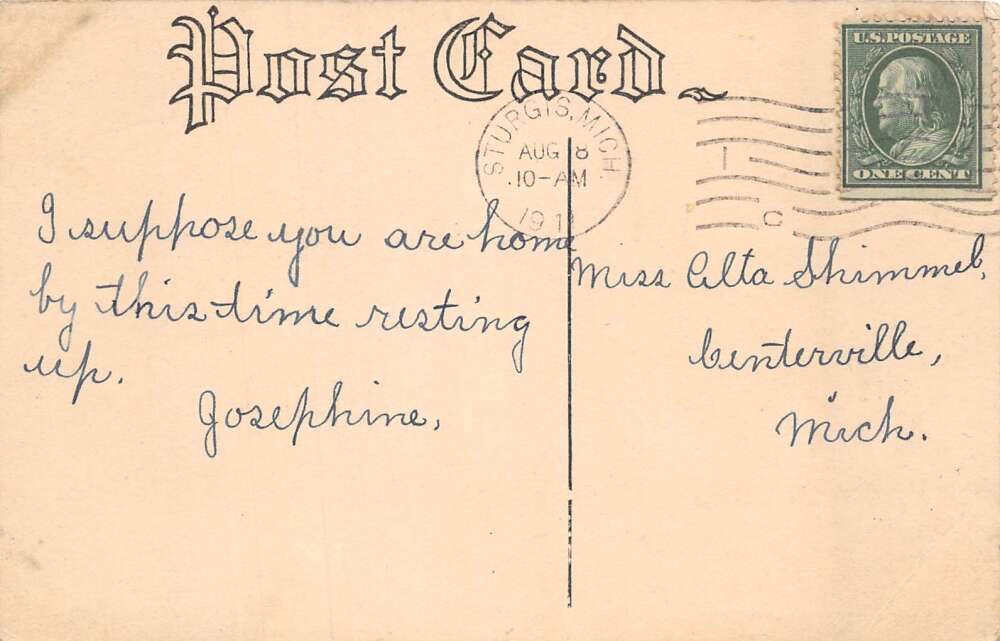 Post Card
U.S. POSTAGE
ONE CENT
STURGIS, MICH.
AUG 8
10-AM
1911
1
C
I suppose you are home
by this time resting
up.
Josephine,
Miss Alta Shimmel,
Centerville,
Mich.